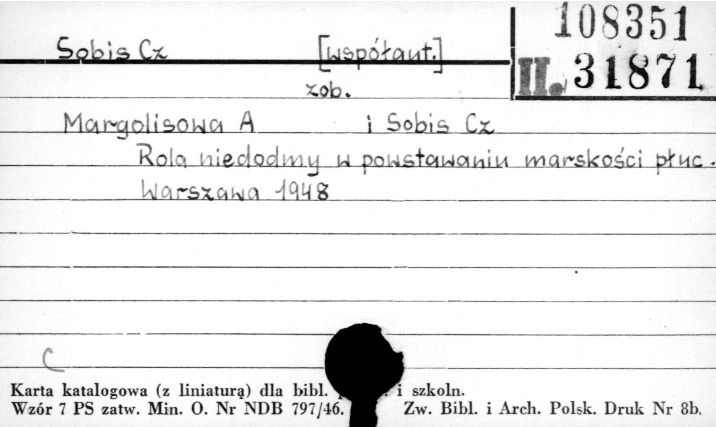 108351
Sobis Cz [współaut.]
II. 31871
zob.
Margolisowa A i Sobis Cz
Rola niedodmy w powstawaniu marskości płuc.
Warszawa 1948
C
Karta katalogowa (z liniaturą) dla bibl. i szkoln.
Wzór 7 PS zatw. Min. O. Nr NDB 797/46. Zw. Bibl. i Arch. Polsk. Druk Nr 8b.